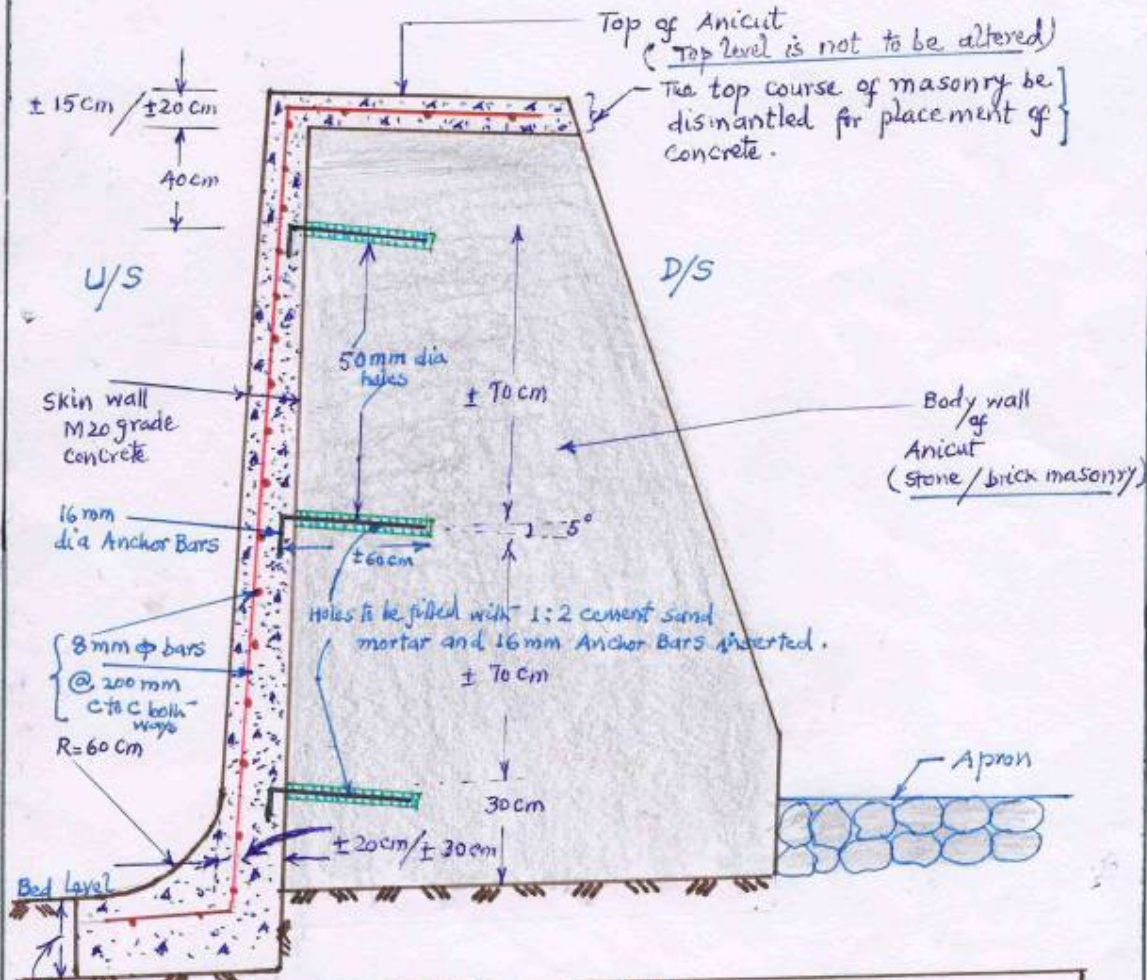 Top of Anicut
(Top level is not to be altered)
± 15cm / ±20cm
The top course of masonry be
dismantled for placement of
concrete.
40cm
U/S
D/S
50mm dia
holes
± 70cm
Skin wall
M20 grade
concrete
Body wall
of
Anicut
(stone/brick masonry)
16mm
dia Anchor Bars
5°
±60cm
Holes to be filled with 1:2 cement sand
mortar and 16mm Anchor Bars inserted.
8mm φ bars
@ 200mm
C to C both
ways
± 70cm
R=60cm
Apron
30cm
±20cm/±30cm
Bed Level